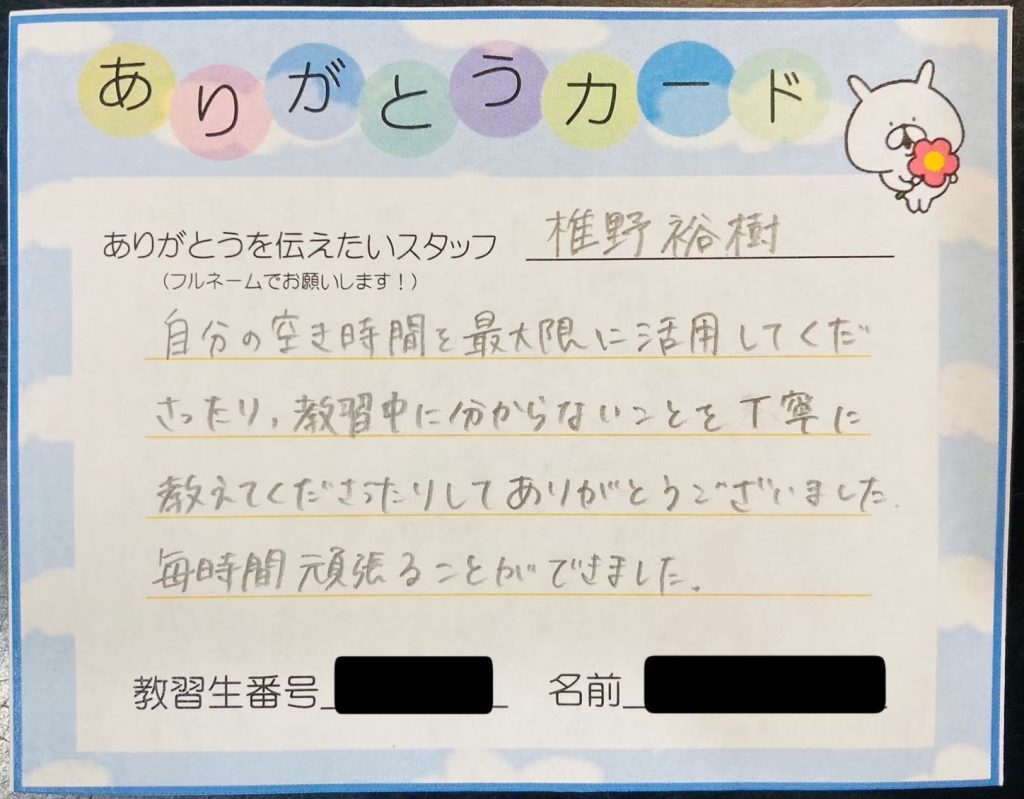 ありがとうカード
ありがとうを伝えたいスタッフ 椎野裕樹
(フルネームでお願いします!)
自分の空き時間を最大限に活用してくだ
さったり,教習中に分からないことを丁寧に
教えてくださったりしてありがとうございました.
毎時間頑張ることができました.
教習生番号 名前